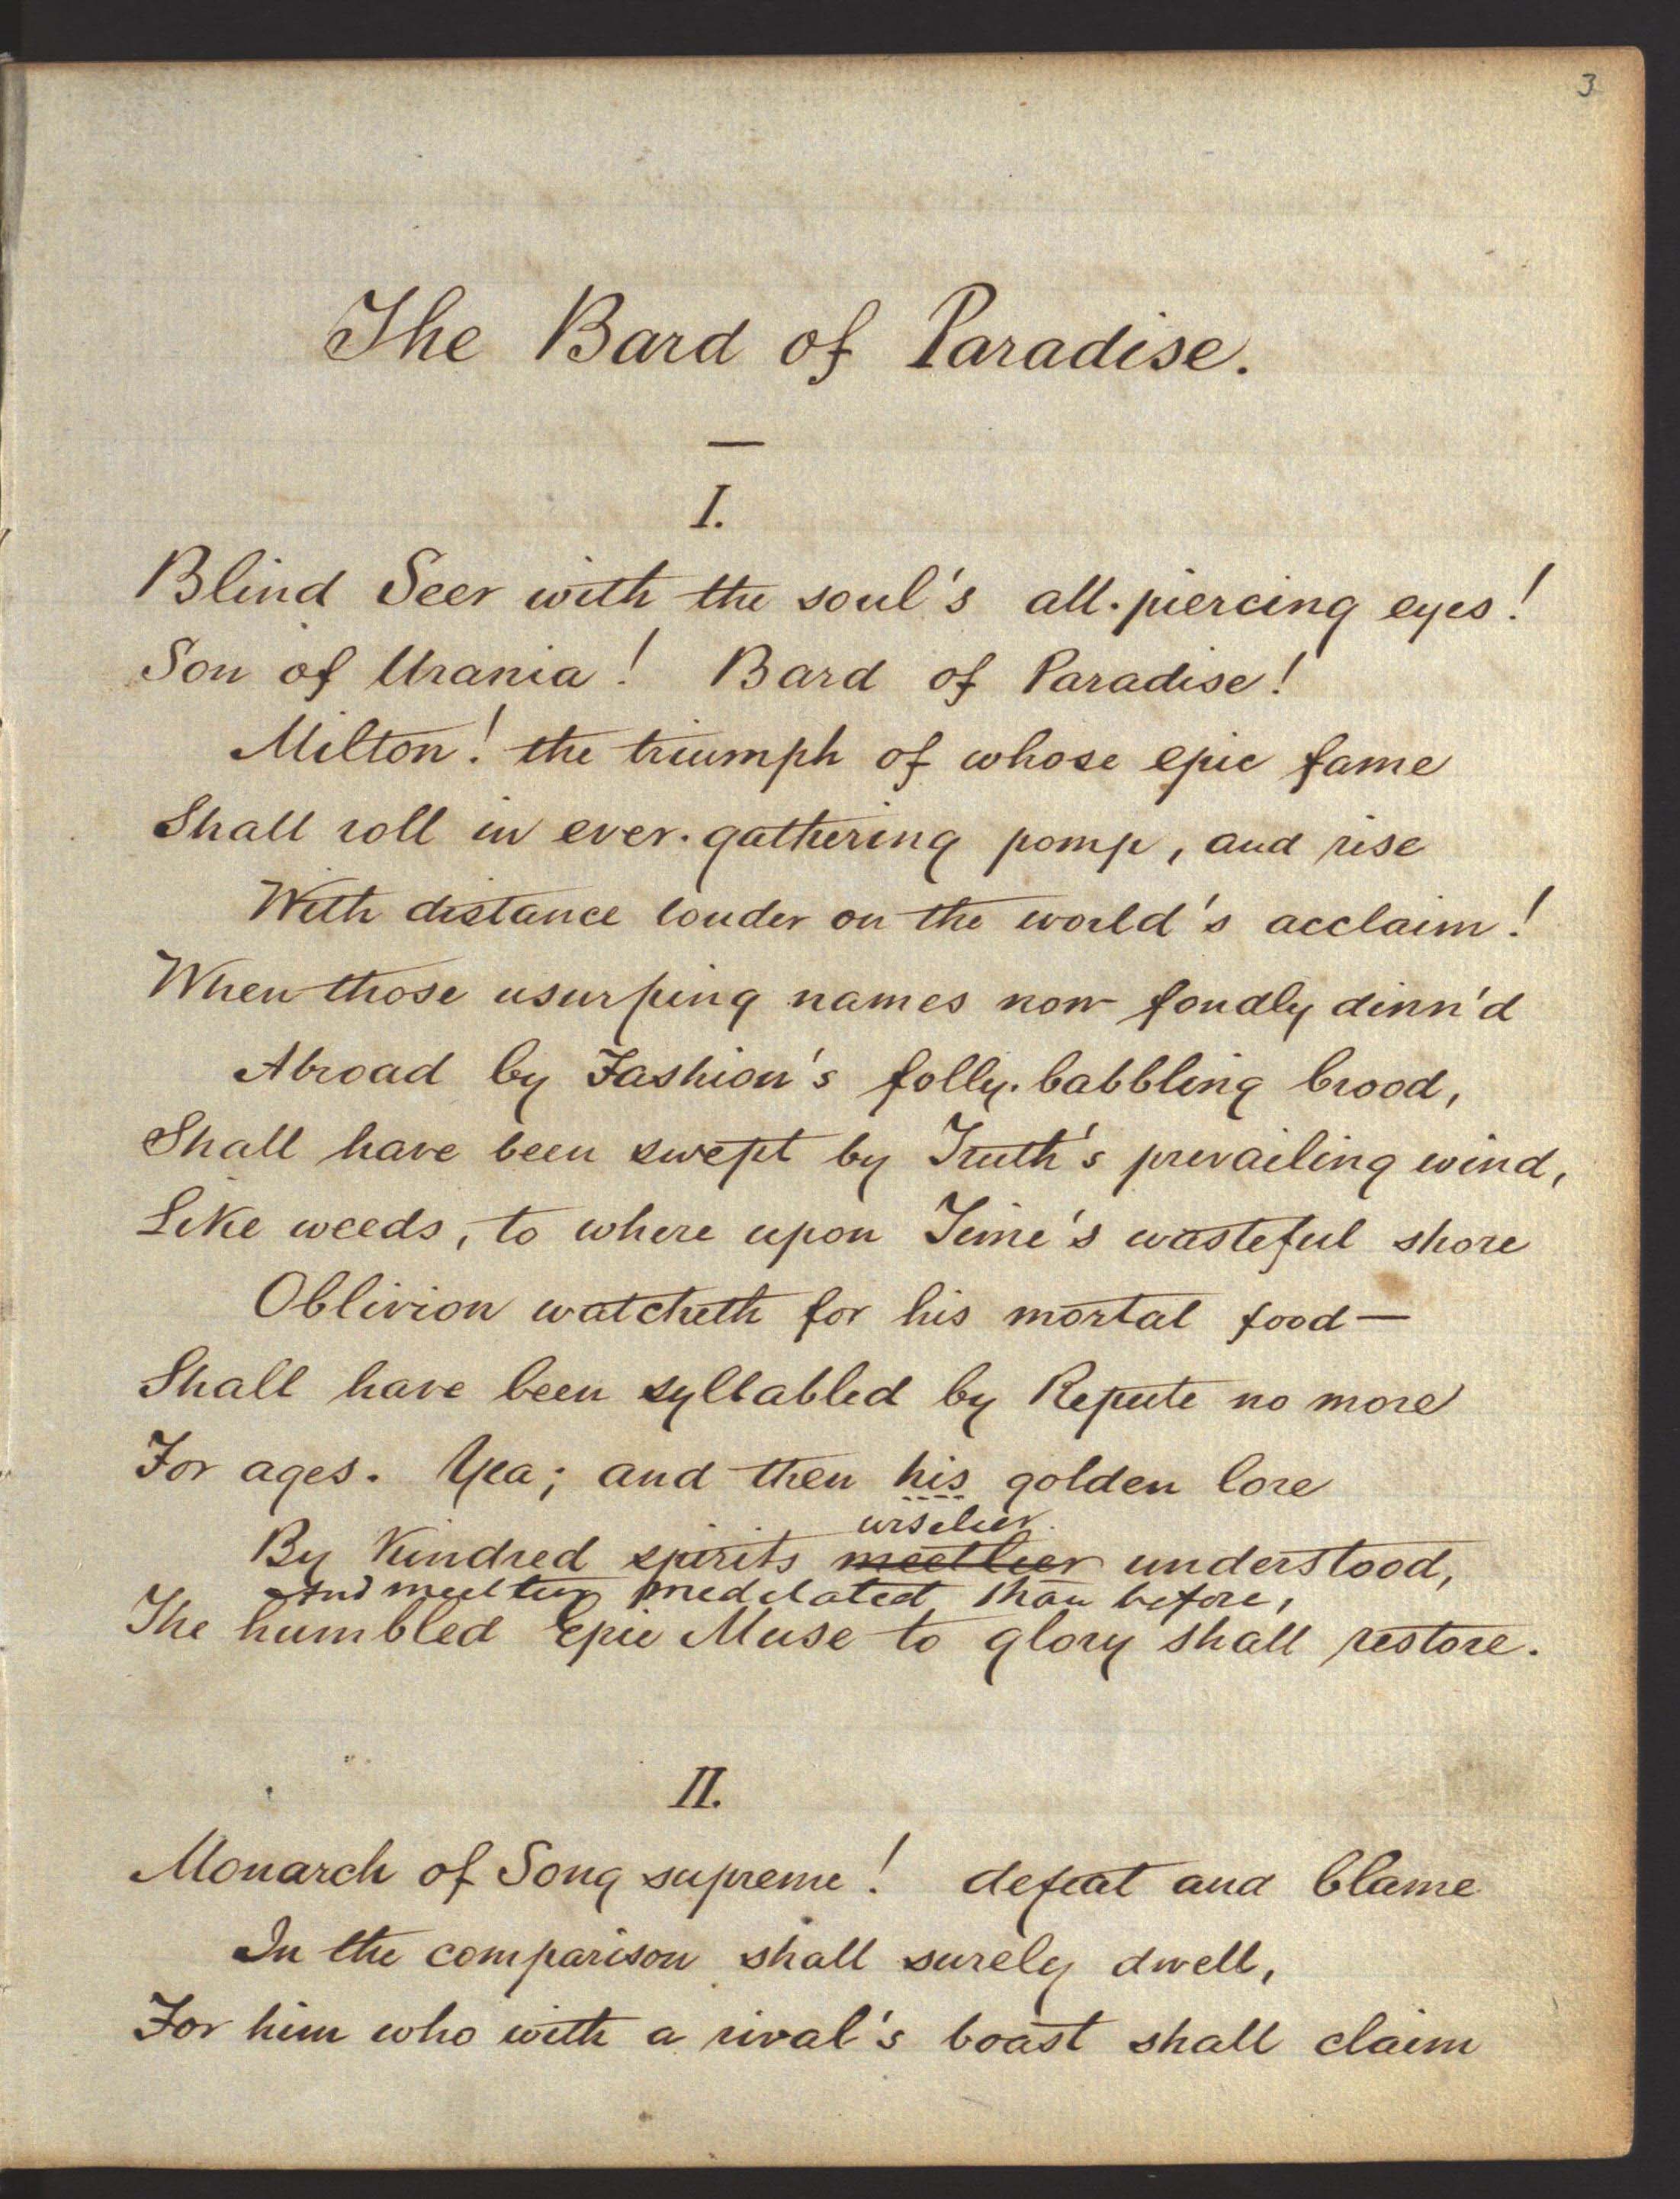 3
The Bard of Paradise.
—
I.
Blind Seer with the soul's all-piercing eyes!
Son of Urania! Bard of Paradise!
Milton! the triumph of whose epic fame
Shall roll in ever-gathering pomp, and rise
With distance louder on the world's acclaim!
When those usurping names now fondly dinn'd
Abroad by Fashion's folly-babbling brood,
Shall have been swept by Truth's prevailing wind,
Like weeds, to where upon Time's wasteful shore
Oblivion watcheth for his mortal food—
Shall have been syllabled by Repute no more
For ages. Yea; and then his golden lore
wiselier
By kindred spirits meetlier understood,
And meetlier meditated than before,
The humbled Epic Muse to glory shall restore.
II.
Monarch of Song supreme! defeat and blame
In the comparison shall surely dwell,
For him who with a rival's boast shall claim